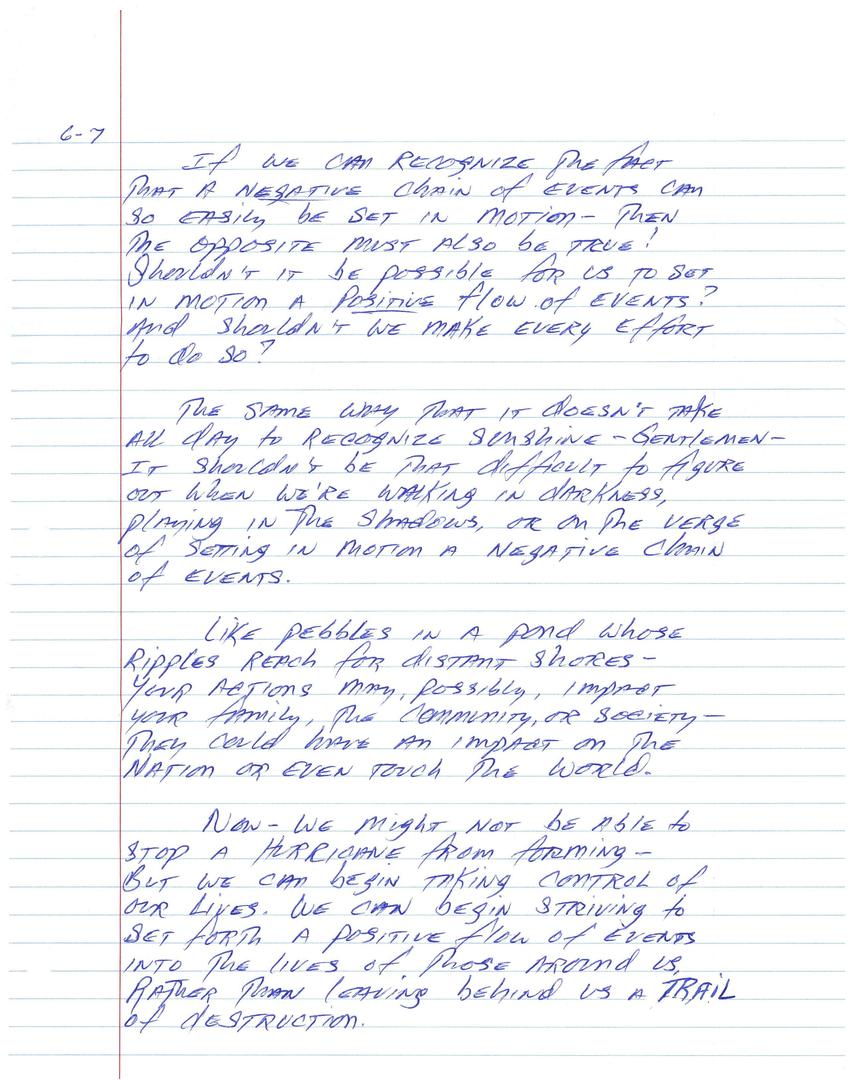 6-7
If we can recognize the fact
that a negative chain of events can
so easily be set in motion - then
the opposite must also be true!
Shouldn't it be possible for us to set
in motion a positive flow of events?
And shouldn't we make every effort
to do so?
The same way that it doesn't take
all day to recognize sunshine - Gentlemen -
It shouldn't be that difficult to figure
out when we're walking in darkness,
playing in the shadows, or on the verge
of setting in motion a negative chain
of events.
Like pebbles in a pond whose
ripples reach for distant shores -
Your actions may, possibly, impact
your family, the community, or society -
They could have an impact on the
nation or even touch the world.
Now - we might not be able to
stop a hurricane from forming -
But we can begin taking control of
our lives. We can begin striving to
set forth a positive flow of events
into the lives of those around us,
rather than leaving behind us a TRAIL
of destruction.